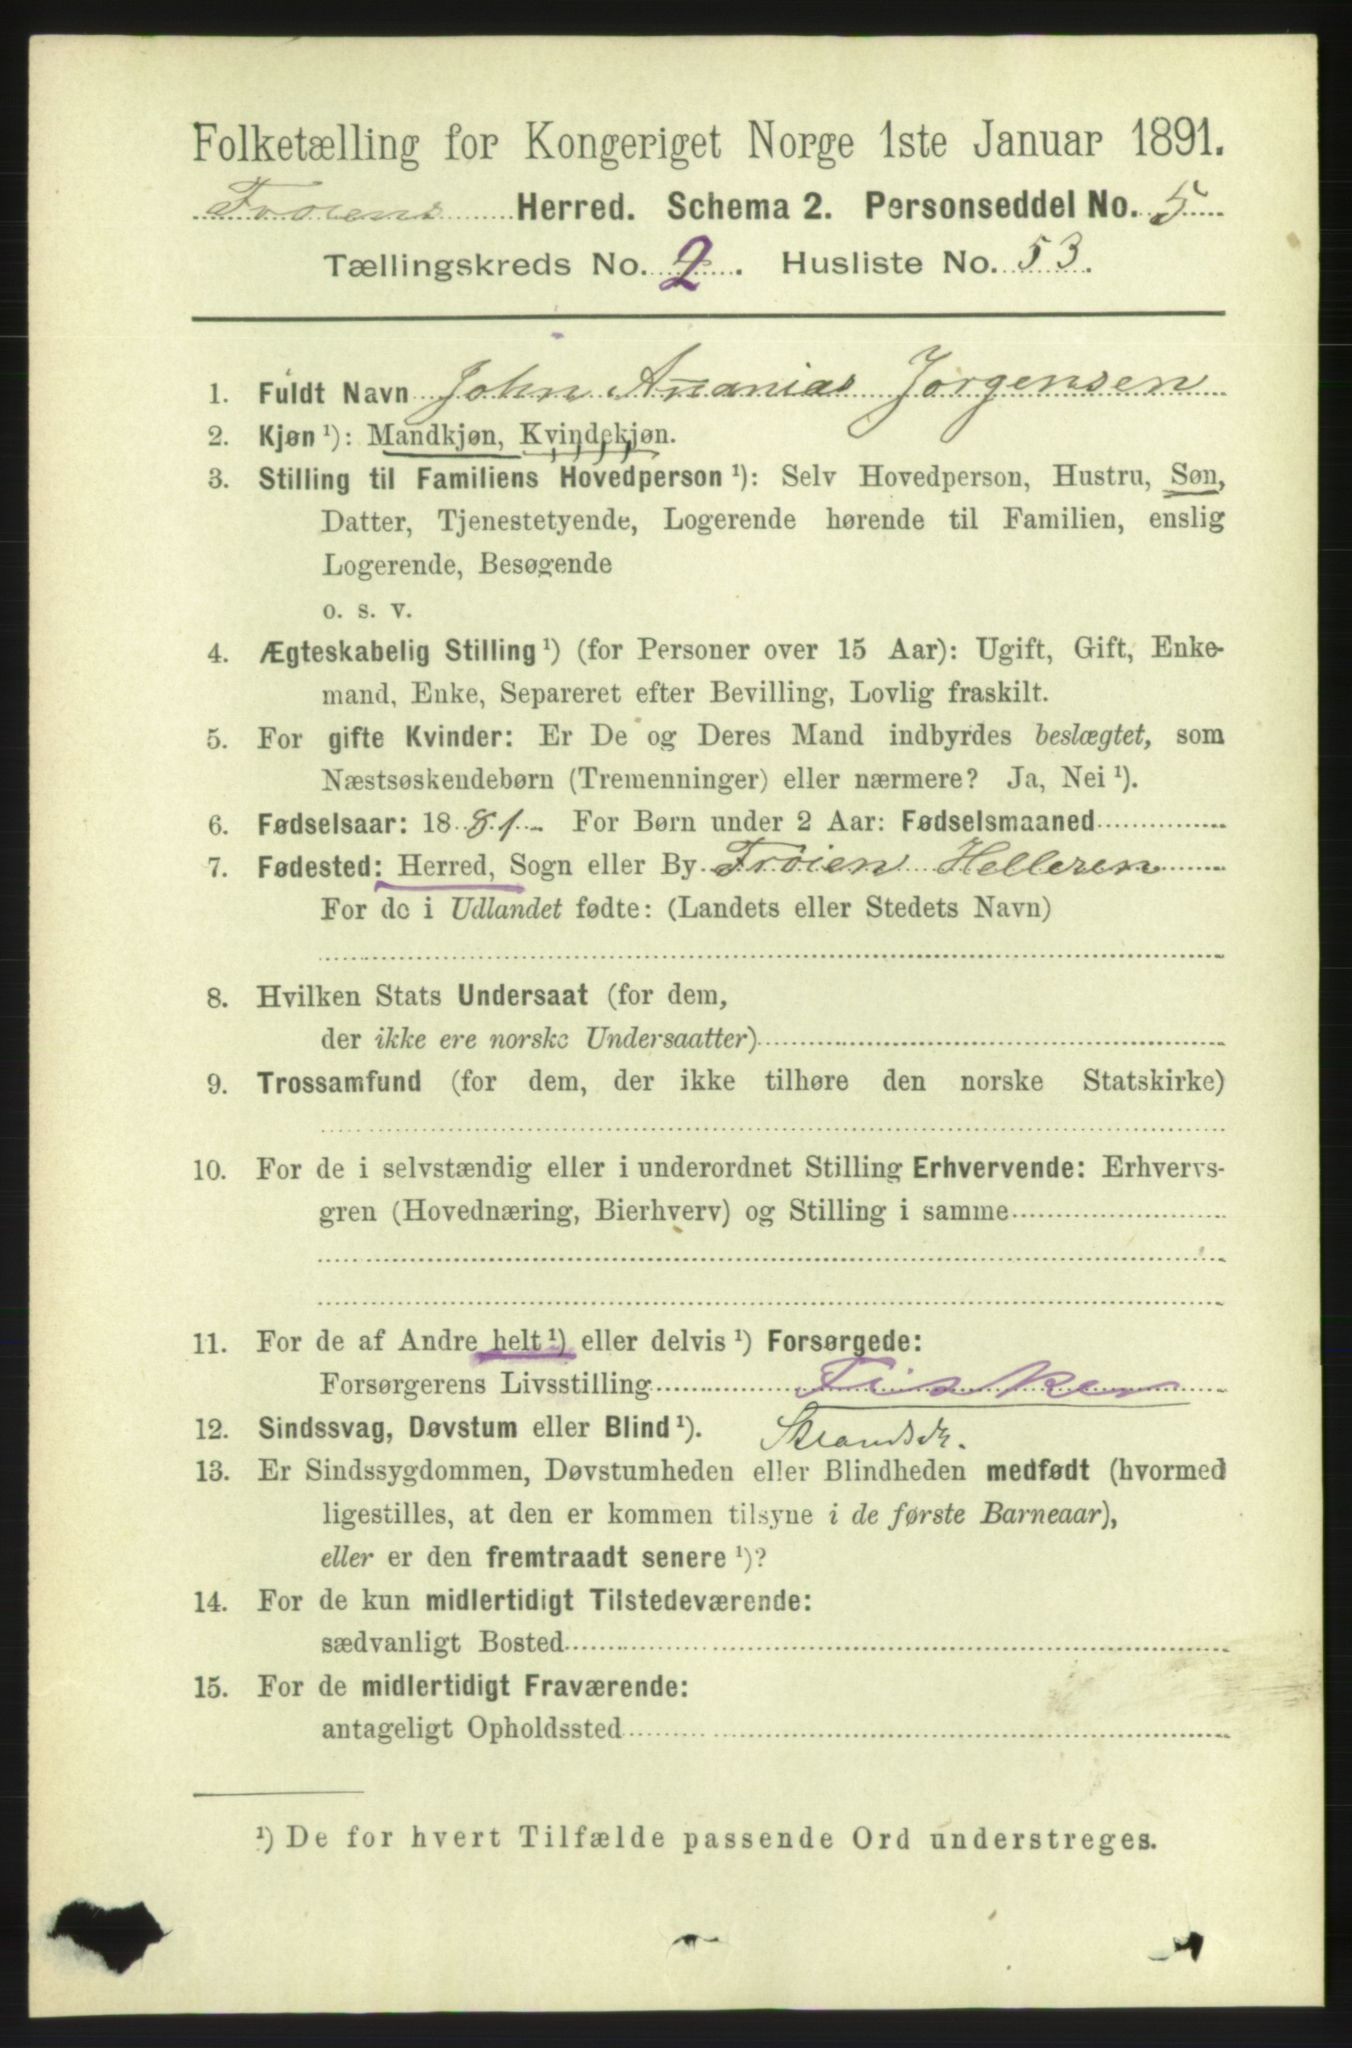 Folketælling for Kongeriget Norge 1ste Januar 1891.
Frøiens Herred. Schema 2. Personseddel No. 5
Tællingskreds No. 2. Husliste No. 53.
1. Fuldt Navn John Ananias Jørgensen
2. Kjøn ¹): Mandkjøn, Kvindekjøn.
3. Stilling til Familiens Hovedperson ¹): Selv Hovedperson, Hustru, Søn,
Datter, Tjenestetyende, Logerende hørende til Familien, enslig
Logerende, Besøgende
o. s. v.
4. Ægteskabelig Stilling ¹) (for Personer over 15 Aar): Ugift, Gift, Enke-
mand, Enke, Separeret efter Bevilling, Lovlig fraskilt.
5. For gifte Kvinder: Er De og Deres Mand indbyrdes beslægtet, som
Næstsøskendebørn (Tremenninger) eller nærmere? Ja, Nei ¹).
6. Fødselsaar: 1881. For Børn under 2 Aar: Fødselsmaaned
7. Fødested: Herred, Sogn eller By Frøien Helleren
For de i Udlandet fødte: (Landets eller Stedets Navn)
8. Hvilken Stats Undersaat (for dem,
der ikke ere norske Undersaatter)
9. Trossamfund (for dem, der ikke tilhøre den norske Statskirke)
10. For de i selvstændig eller i underordnet Stilling Erhvervende: Erhvervs-
gren (Hovednæring, Bierhverv) og Stilling i samme
11. For de af Andre helt ¹) eller delvis ¹) Forsørgede:
Forsørgerens Livsstilling Fisker
12. Sindssvag, Døvstum eller Blind ¹). Strandsdr.
13. Er Sindssygdommen, Døvstumheden eller Blindheden medfødt (hvormed
ligestilles, at den er kommen tilsyne i de første Barneaar),
eller er den fremtraadt senere ¹)?
14. For de kun midlertidigt Tilstedeværende:
sædvanligt Bosted
15. For de midlertidigt Fraværende:
antageligt Opholdssted
¹) De for hvert Tilfælde passende Ord understreges.